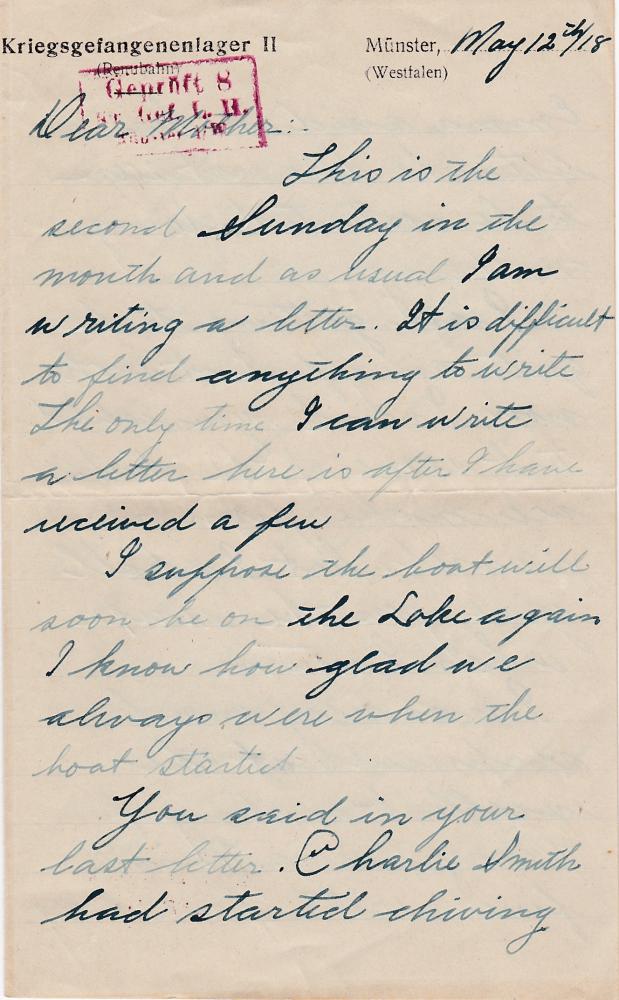 Kriegsgefangenenlager II
Münster, May 12th/18
(Rennbahn)
(Westfalen)
Geprüft 8
Dear Mother:-
This is the
second Sunday in the
month and as usual I am
writing a letter. It is difficult
to find anything to write
The only time I can write
a letter here is after I have
received a few
I suppose the boat will
soon be on the Lake again
I know how glad we
always were when the
boat started
You said in your
last letter. Charlie Smith
had started chiving